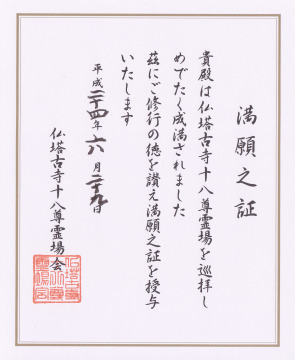 満願之証
貴殿は仏塔古寺十八尊霊場を巡拝し
めでたく成満されました
茲にご修行の徳を讃え満願之証を授与
いたします
平成二十四年六月二十九日
仏塔古寺十八尊霊場会